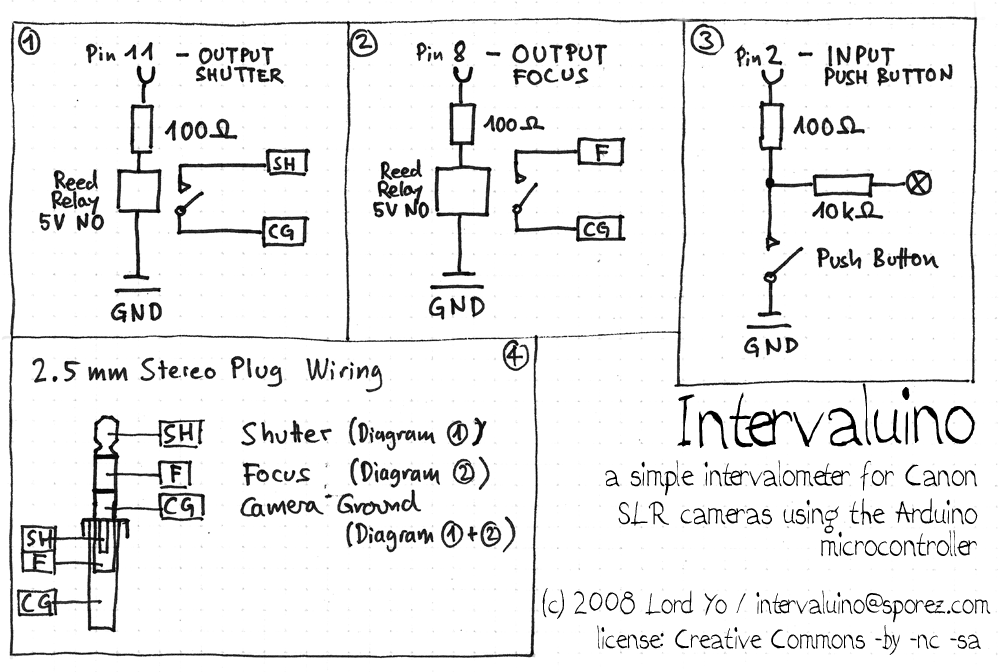 1
Pin 11 - OUTPUT
SHUTTER
100Ω
SH
Reed
Relay
5V NO
CG
GND
2
Pin 8 - OUTPUT
FOCUS
100Ω
F
Reed
Relay
5V NO
CG
GND
3
Pin 2 - INPUT
PUSH BUTTON
100Ω
10kΩ
Push Button
GND
4
2.5 mm Stereo Plug Wiring
SH Shutter (Diagram 1)
F Focus (Diagram 2)
CG Camera-Ground
(Diagram 1+2)
SH
F
CG
Intervaluino
a simple intervalometer for Canon
SLR cameras using the Arduino
microcontroller
(c) 2008 Lord Yo / intervaluino@sporez.com
license: Creative Commons -by -nc -sa